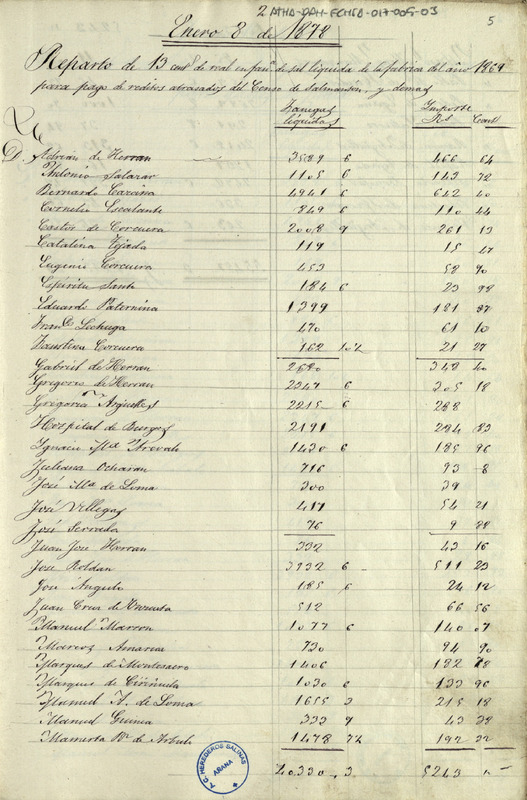 2 ATHA-DAH-FCHSA-017-005-03
5
Enero 3 de 1872
Reparto de 13 cent.s de real en fan.a de sal líquida de la fabrica del año 1869
para pago de reditos atrasados del Censo de Salmanton, y demas
Fanegas líquidas Importe Rs Cent
D. Adrian de Herran 3589 6 466 64
Antonio Salazar 1105 6 143 72
Bernardo Garcina 4941 6 642 40
Cornelio Escalante 849 6 110 44
Castor de Corcuera 2008 9 261 13
Catalina Tejada 119 15 47
Eugenio Corcuera 453 58 90
Espiritu Santo 184 6 23 98
Eduardo Paternina 1399 181 87
Fran.co Lechuga 470 61 10
Faustina Corcuera 162 10½ 21 27
Gabriel de Herran 2680 348 40
Gregorio de Herran 2347 6 305 18
Gregoria Arguelles 2215 6 288
Hospital de Burgos 2191 284 83
Ignacio M.a Arevalo 1430 6 185 96
Juliana Ocharan 716 93 8
José M.a de Loma 300 39
José Villegas 417 54 21
José Serrada 76 9 88
Juan José Herran 332 43 16
José Roldan 3932 6 511 23
José Angulo 185 6 24 12
Juan Cruz de 512 66 56
Manuel Marron 1077 6 140 07
Marcos Amarica 730 94 90
Marques de Montesacro 1406 182 78
Marques de Ciriñuela 1030 6 133 96
Manuel A. de Loma 1655 3 215 18
Manuel Guinea 333 9 43 38
Mamerta 1478 7½ 192 22
40.330 3 5243
A.C. HEREDEROS SALINAS
ARANA